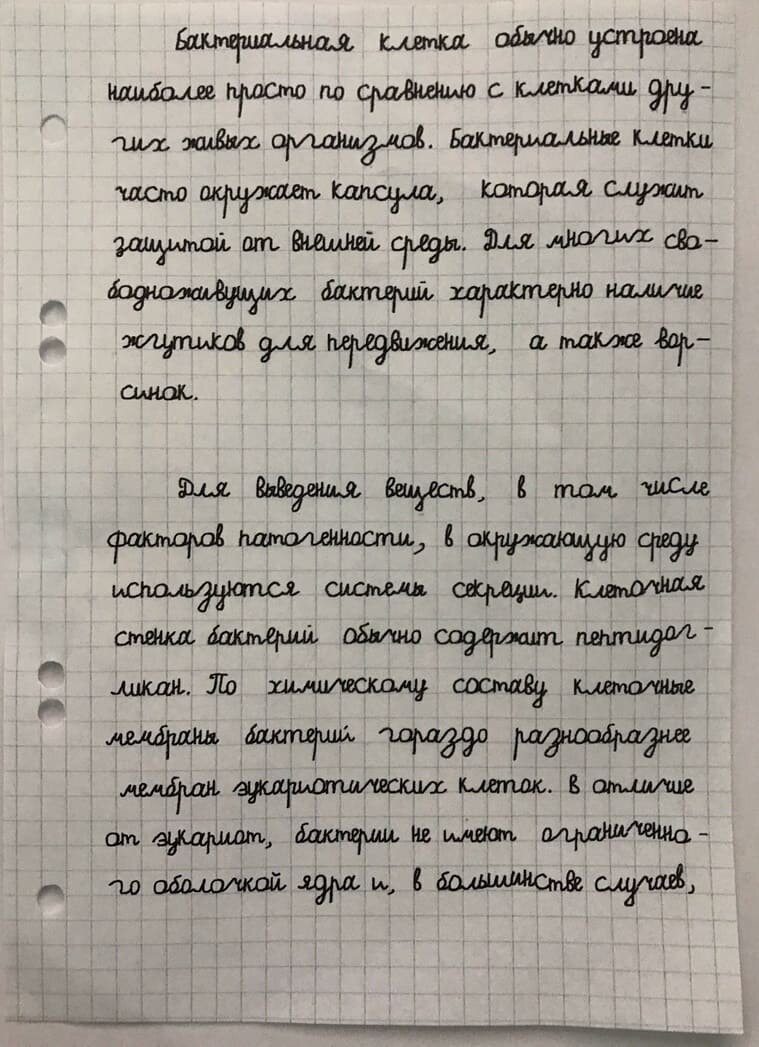 Бактериальная клетка обычно устроена
наиболее просто по сравнению с клетками дру-
гих живых организмов. Бактериальные клетки
часто окружает капсула, которая служит
защитой от внешней среды. Для многих сво-
бодноживущих бактерий характерно наличие
жгутиков для передвижения, а также вор-
синок.
Для выведения веществ, в том числе
факторов патогенности, в окружающую среду
используются системы секреции. Клеточная
стенка бактерий обычно содержит пептидог-
ликан. По химическому составу клеточные
мембраны бактерий гораздо разнообразнее
мембран эукариотических клеток. В отличие
от эукариот, бактерии не имеют ограниченно-
го оболочкой ядра и, в большинстве случаев,